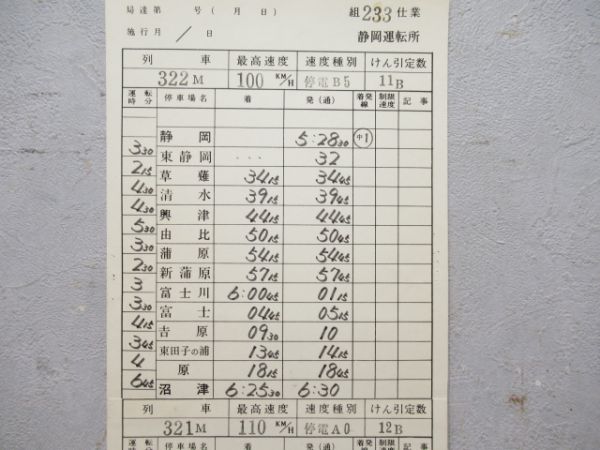 局達第 号（ 月 日） 組233仕業
施行月 / 日 静岡運転所
列 車 最高速度 速度種別 けん引定数
322M 100 KM/H 停電B5 11B
運転時分 停車場名 着 発(通) 着発線 制限速度 記事
静岡 5:28 30 中1
3 30
東静岡 ... 32
2 15
草薙 34 15 34 45
4 30
清水 39 15 39 45
4 30
興津 44 15 44 45
5 30
由比 50 15 50 45
3 30
蒲原 54 15 54 45
2 30
新蒲原 57 15 57 45
3
富士川 6:00 45 01 15
3 30
富士 04 45 05 15
4 15
吉原 09 30 10
3 45
東田子の浦 13 45 14 15
4
原 18 15 18 45
6 45
沼津 6:25 30 6:30
列 車 最高速度 速度種別 けん引定数
321M 110 KM/H 停電A0 12B
運転 停車場名 着 発(通) 着発 制限 記事